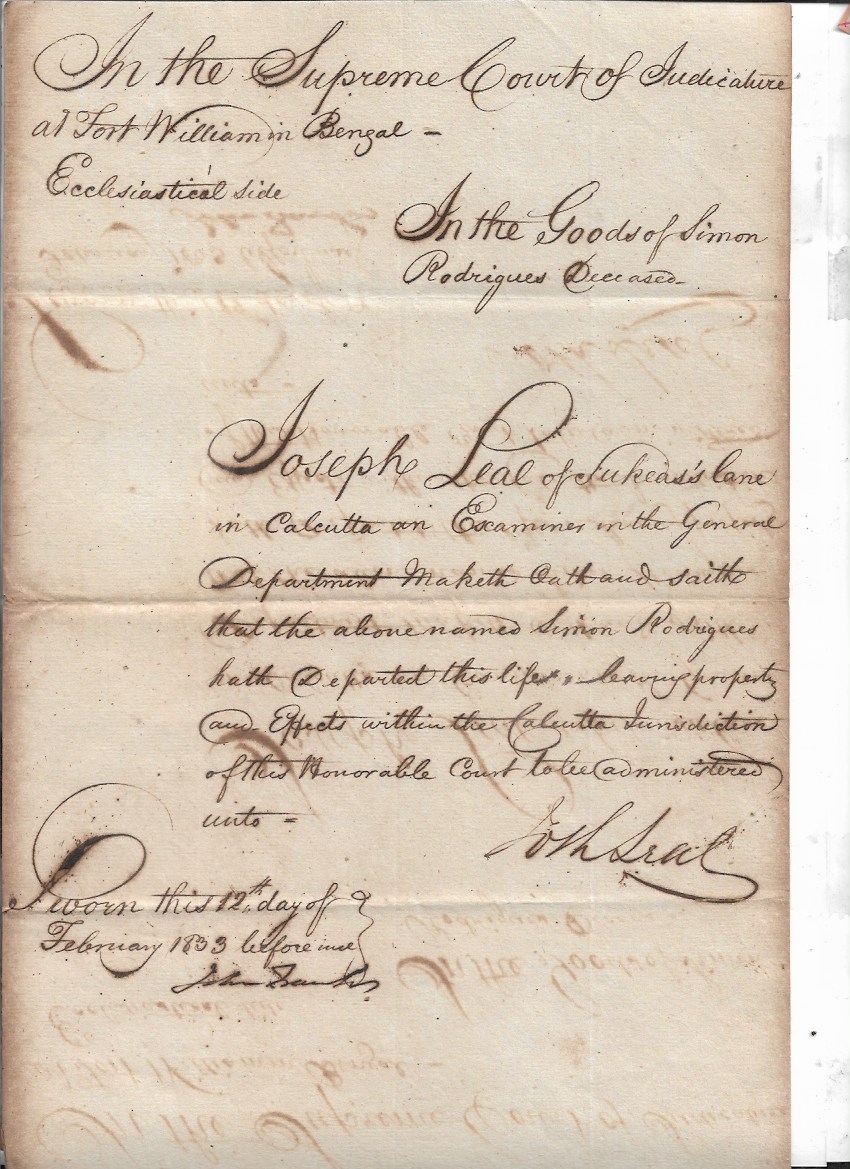 In the Supreme Court of Judicature
at Fort William in Bengal –
Ecclesiastical side
In the Goods of Simon
Rodrigues Deceased –
Joseph Leal of Sukeas's lane
in Calcutta an Examiner in the General
Department Maketh Oath and saith
that the above named Simon Rodrigues
hath Departed this life leaving property
and Effects within the Calcutta Jurisdiction
of this Honorable Court to be administered
unto =
Josh Leal
Sworn this 12th day of
February 1833 before me
John Franks